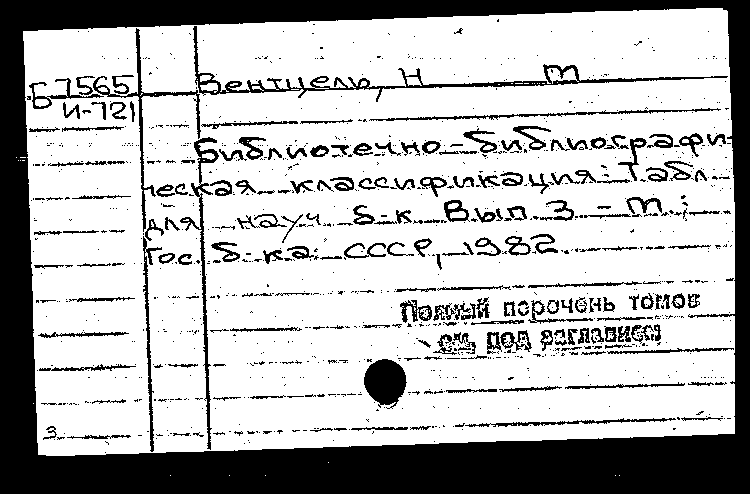 Б 7565
И-721
Вентцель, Н m
Библиотечно-библиографи-
ческая классификация: Табл.
для науч б-к Вып. 3 - m.:
Гос. б-ка СССР, 1982.
Полный перечень томов
см. под заглавием
3